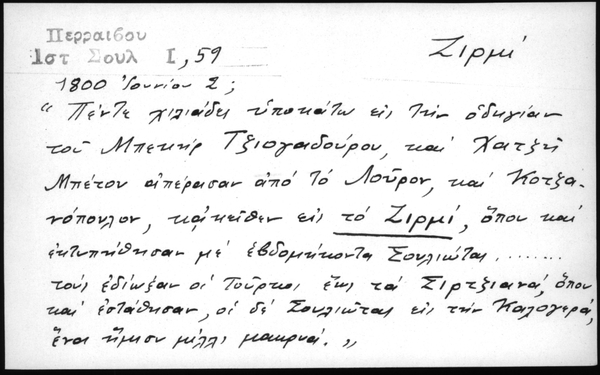 Περραιβου
Ιστ Σουλ Ι, 59
Ζιρμί
1800 Ἰουνίου 2;
"Πέντε χιλιάδες ὑποκάτω εἰς τὴν ὁδηγίαν
τοῦ Μπεκὴρ Τζιογαδούρου, καὶ Χατζῆ
Μπέτου ἀπέρασαν ἀπὸ τὸ Λοῦρον, καὶ Κοτζα-
νόπουλον, κἀκεῖθεν εἰς τὸ Ζιρμί, ὅπου καὶ
ἐκτυπήθησαν μὲ ἑβδομήκοντα Σουλιώτας........
τοὺς ἐδίωξαν οἱ Τοῦρκοι ἕως τὰ Σιρτζιανά, ὅπου
καὶ ἐστάθησαν, οἱ δὲ Σουλιῶται εἰς τὴν Καλογερά,
ἕνα ἥμισυ μίλλι μακρυά.„